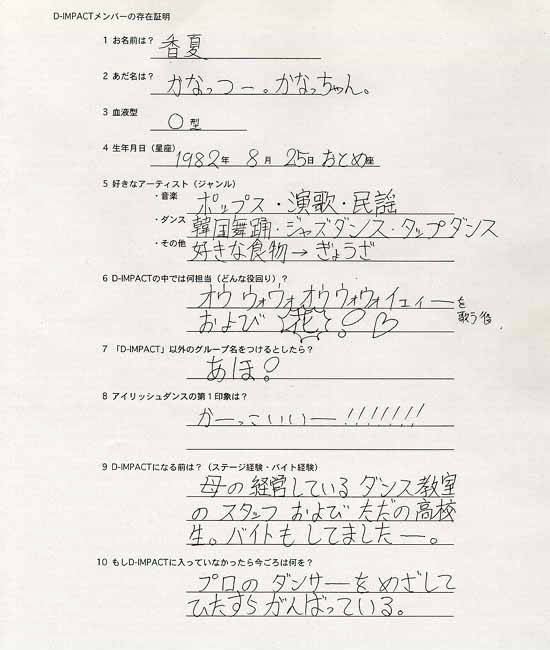 D-IMPACTメンバーの存在証明
1 お名前は？ 香夏
2 あだ名は？ かなっつー。かなっちゃん。
3 血液型 O 型
4 生年月日（星座） 1982年 8月 25日 おとめ座
5 好きなアーティスト（ジャンル）
・音楽 ポップス・演歌・民謡
・ダンス 韓国舞踊・ジャズダンス・タップダンス
・その他 好きな食物→ぎょうざ
6 D-IMPACTの中では何担当（どんな役回り）？
オウ ウォウォオウ ウォウォイェィーを歌う係.
および 花!♡
7 「D-IMPACT」以外のグループ名をつけるとしたら？
あほ!
8 アイリッシュダンスの第1印象は？
かーっこいいー!!!!!!!!
9 D-IMPACTになる前は？（ステージ経験・バイト経験）
母の経営しているダンス教室
のスタッフ および ただの高校
生。バイトもしてましたー。
10 もしD-IMPACTに入っていなかったら今ごろは何を？
プロのダンサーをめざして
ひたすらがんばっている。